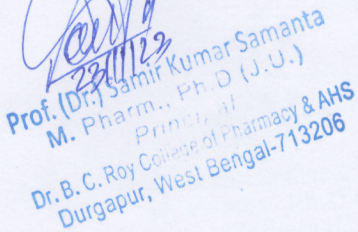 23/11/23
Prof. (Dr.) Samir Kumar Samanta
M. Pharm., Ph.D (J.U.)
Principal
Dr. B. C. Roy College of Pharmacy & AHS
Durgapur, West Bengal-713206